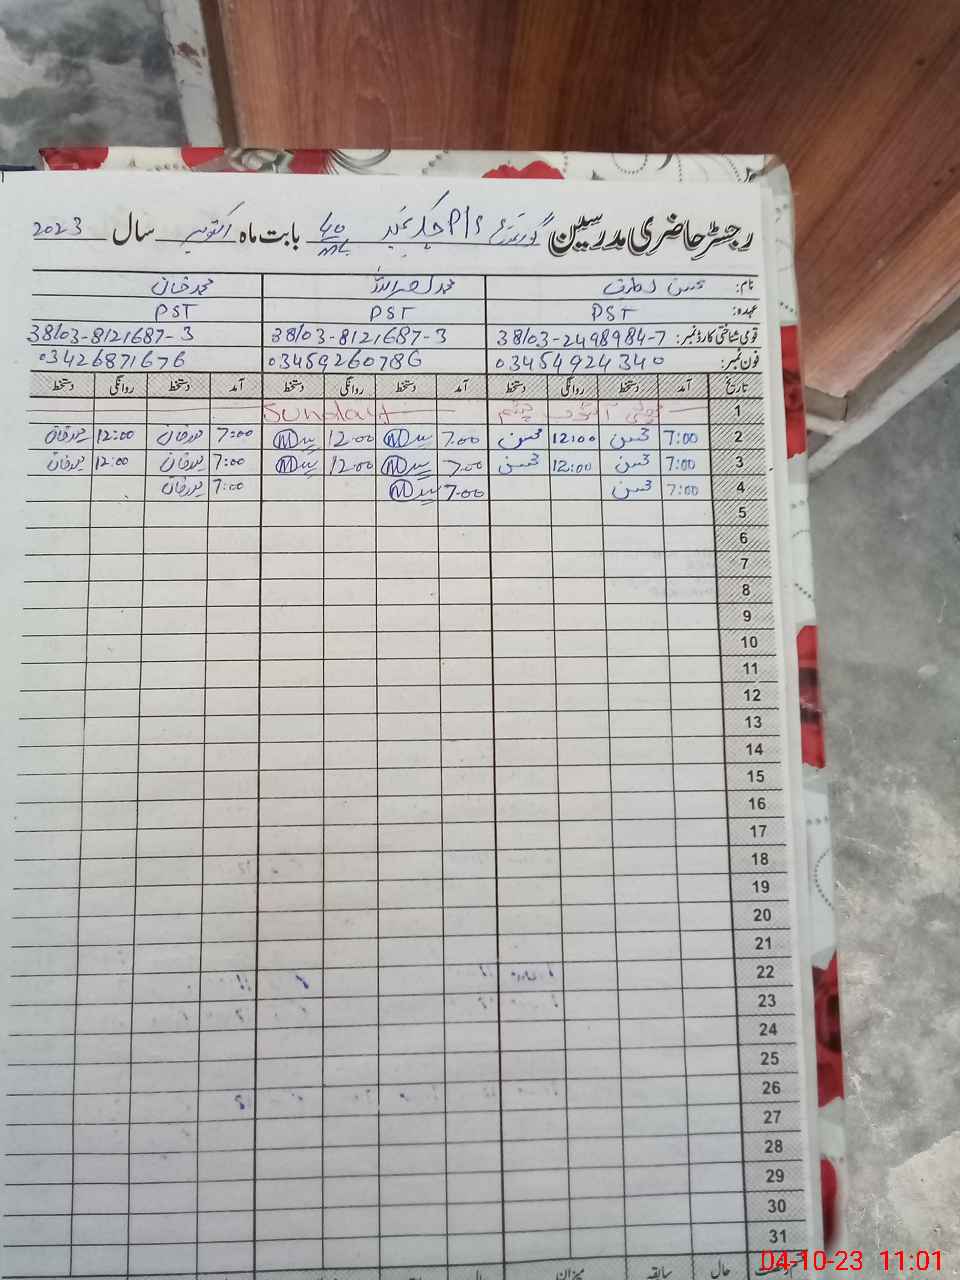 رجسٹر حاضری مدرسین گورنمنٹ P/S چک نمبر 40 بابت ماہ اکتوبر سال 2023
نام: محسن لطیف محمد نصراللہ محمد خان
عہدہ: PST PST PST
قومی شناختی کارڈ نمبر: 38103-2498984-7 38103-8121687-3 38103-8121687-3
فون نمبر: 03454924340 03459260786 03426871676
تاریخ آمد دستخط روانگی دستخط آمد دستخط روانگی دستخط آمد دستخط روانگی دستخط
1 Sunday
2 7:00 محسن 12:00 محسن 7.00 12.00 7:00 12:00
3 7:00 محسن 12:00 محسن 7.00 12.00 7:00 12:00
4 7:00 محسن 7.00 7:00
5
6
7
8
9
10
11
12
13
14
15
16
17
18
19
20
21
22
23
24
25
26
27
28
29
30
31
حال سابقہ میزان
04-10-23 11:01